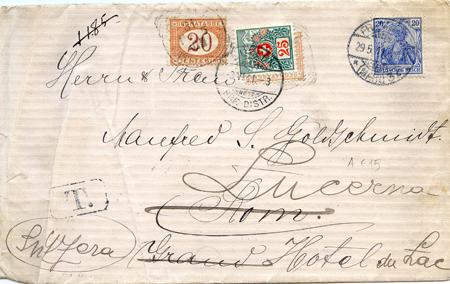 1185
SEGNATASSE
20
CENTESIMI
25
20 20
DEUTSCHES REICH
29.5
BRF. DISTR.
Herrn & Frau
Manfred S. Goldschmidt.
Lucerna
Rom.
T.
Svizzera
Grand Hotel du Lac